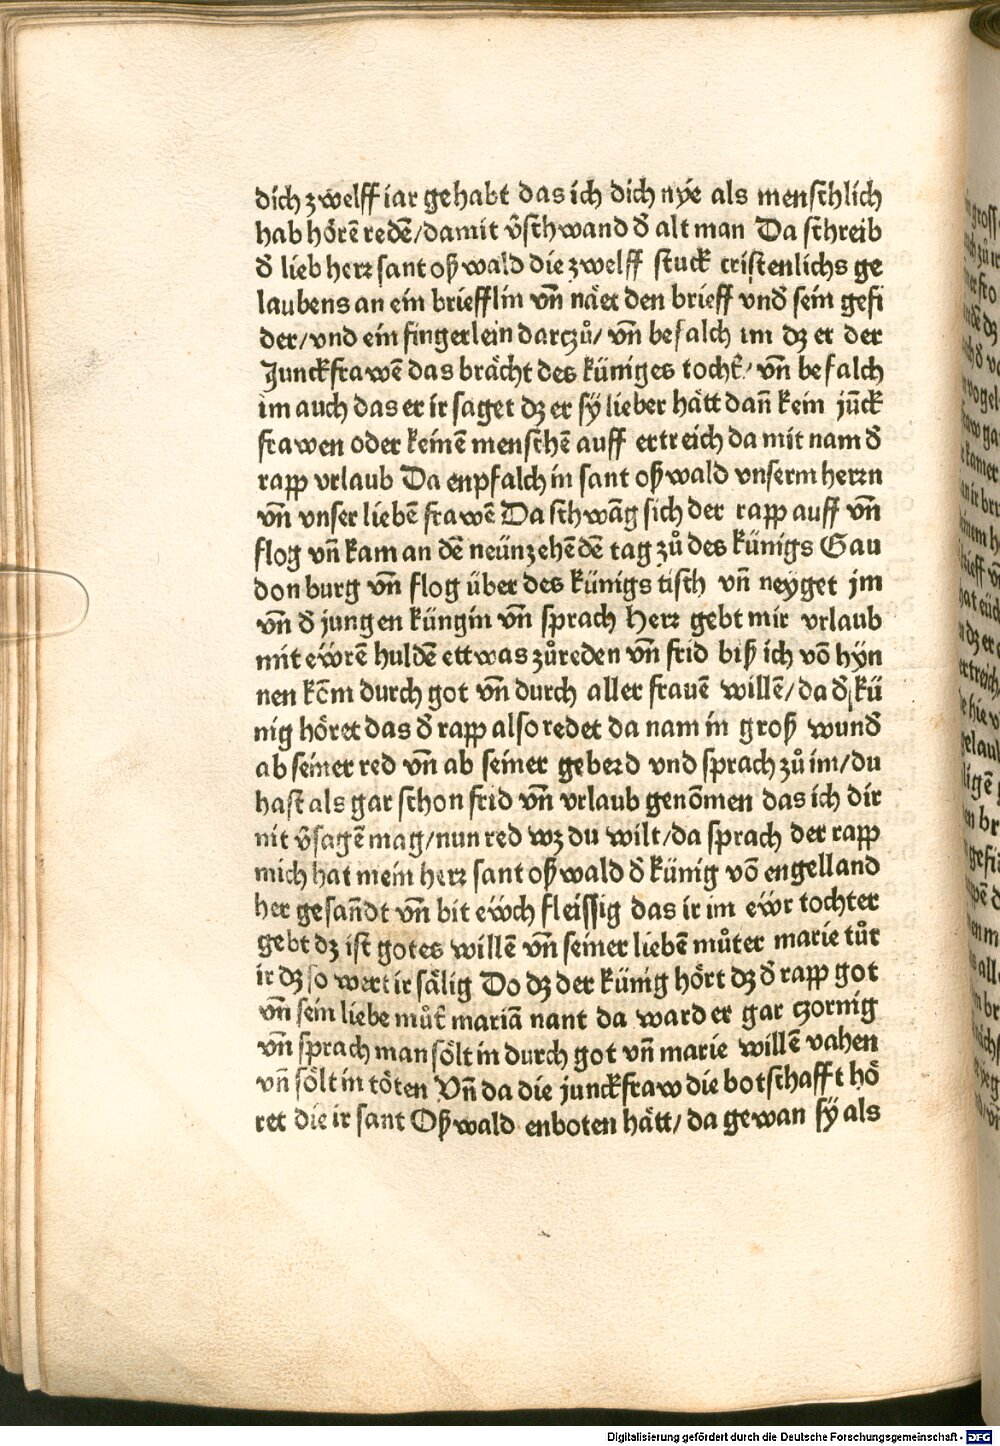 dich zwelff iar gehabt das ich dich nye als menschlich
hab hörē redē/damit v̄schwand đ alt man Da schreib
đ lieb herr sant oßwald die zwelff stuck cristenlichs ge
laubens an ein briefflin vn̄ näet den brieff vnđ sein gefi
der/vnd ein fingerlein darczů/ vn̄ befalch im dz er der
Junckfrawē das brächt des küniges tocht̄/ vn̄ befalch
im auch das er ir saget dz er sÿ lieber hätt dan̄ kein jūck
frawen oder keinē menschē auff ertreich da mit nam đ
rapp vrlaub Da enpfalch in sant oßwald vnserm herrn
vn̄ vnser liebē frawē Da schwāg sich der rapp auff vn̄
flog vn̄ kam an dē neünzehēdē tag zů des künigs Gau
don burg vn̄ flog über des künigs tisch vn̄ neyget jm
vn̄ đ jungen küngin vn̄ sprach Herr gebt mir vrlaub
mit ewrē huldē ettwas zůreden vn̄ frid biß ich vō hÿn
nen kōm durch got vn̄ durch aller frauē willē/da đ kü
nig höret das đ rapp also redet da nam in groß wunđ
ab seiner red vn̄ ab seiner geberd vnd sprach zů im/du
hast als gar schon frid vn̄ vrlaub genōmen das ich dir
nit v̄sagē mag/nun red wz du wilt/da sprach der rapp
mich hat mein herr sant oßwald đ künig vō engelland
her gesan̄dt vn̄ bit ewch fleissig das ir im ewr tochter
gebt dz ist gotes willē vn̄ seiner liebē můter marie tůt
ir dz so wert ir sälig Do dz der künig hört dz đ rapp got
vn̄ sein liebe můt̄ mariā nant da ward er gar czornig
vn̄ sprach man sölt in durch got vn̄ marie willē vahen
vn̄ sölt in töten Vn̄ da die junckfraw die botschafft hö
ret die ir sant Oßwald enboten hätt/ da gewan sÿ als
Digitalisierung gefördert durch die Deutsche Forschungsgemeinschaft - DFG